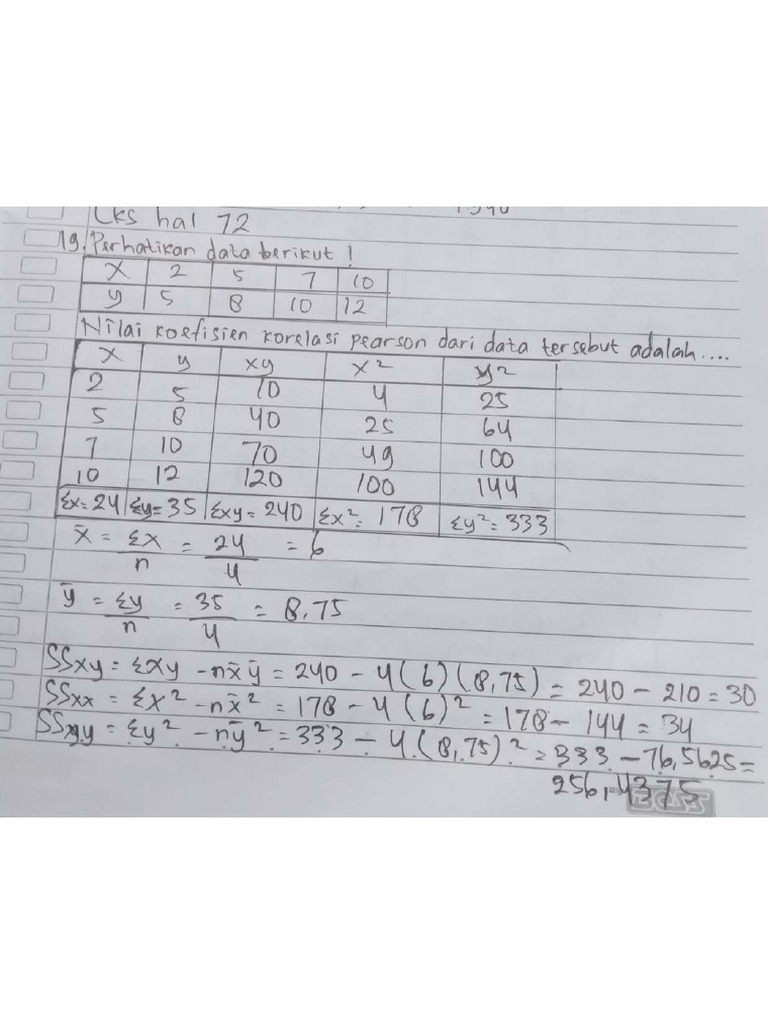 LKS hal 72
19. Perhatikan data berikut !
x 2 5 7 10
y 5 8 10 12
Nilai koefisien korelasi pearson dari data tersebut adalah....
x y xy x² y²
2 5 10 4 25
5 8 40 25 64
7 10 70 49 100
10 12 120 100 144
Σx=24 Σy=35 Σxy=240 Σx²=178 Σy²=333
x̄ = Σx/n = 24/4 = 6
ȳ = Σy/n = 35/4 = 8,75
SSxy = Σxy - nx̄ȳ = 240 - 4(6)(8,75) = 240 - 210 = 30
SSxx = Σx² - nx̄² = 178 - 4(6)² = 178 - 144 = 34
SSyy = Σy² - nȳ² = 333 - 4(8,75)² = 333 - 76,5625 =
256,4375
BOSS